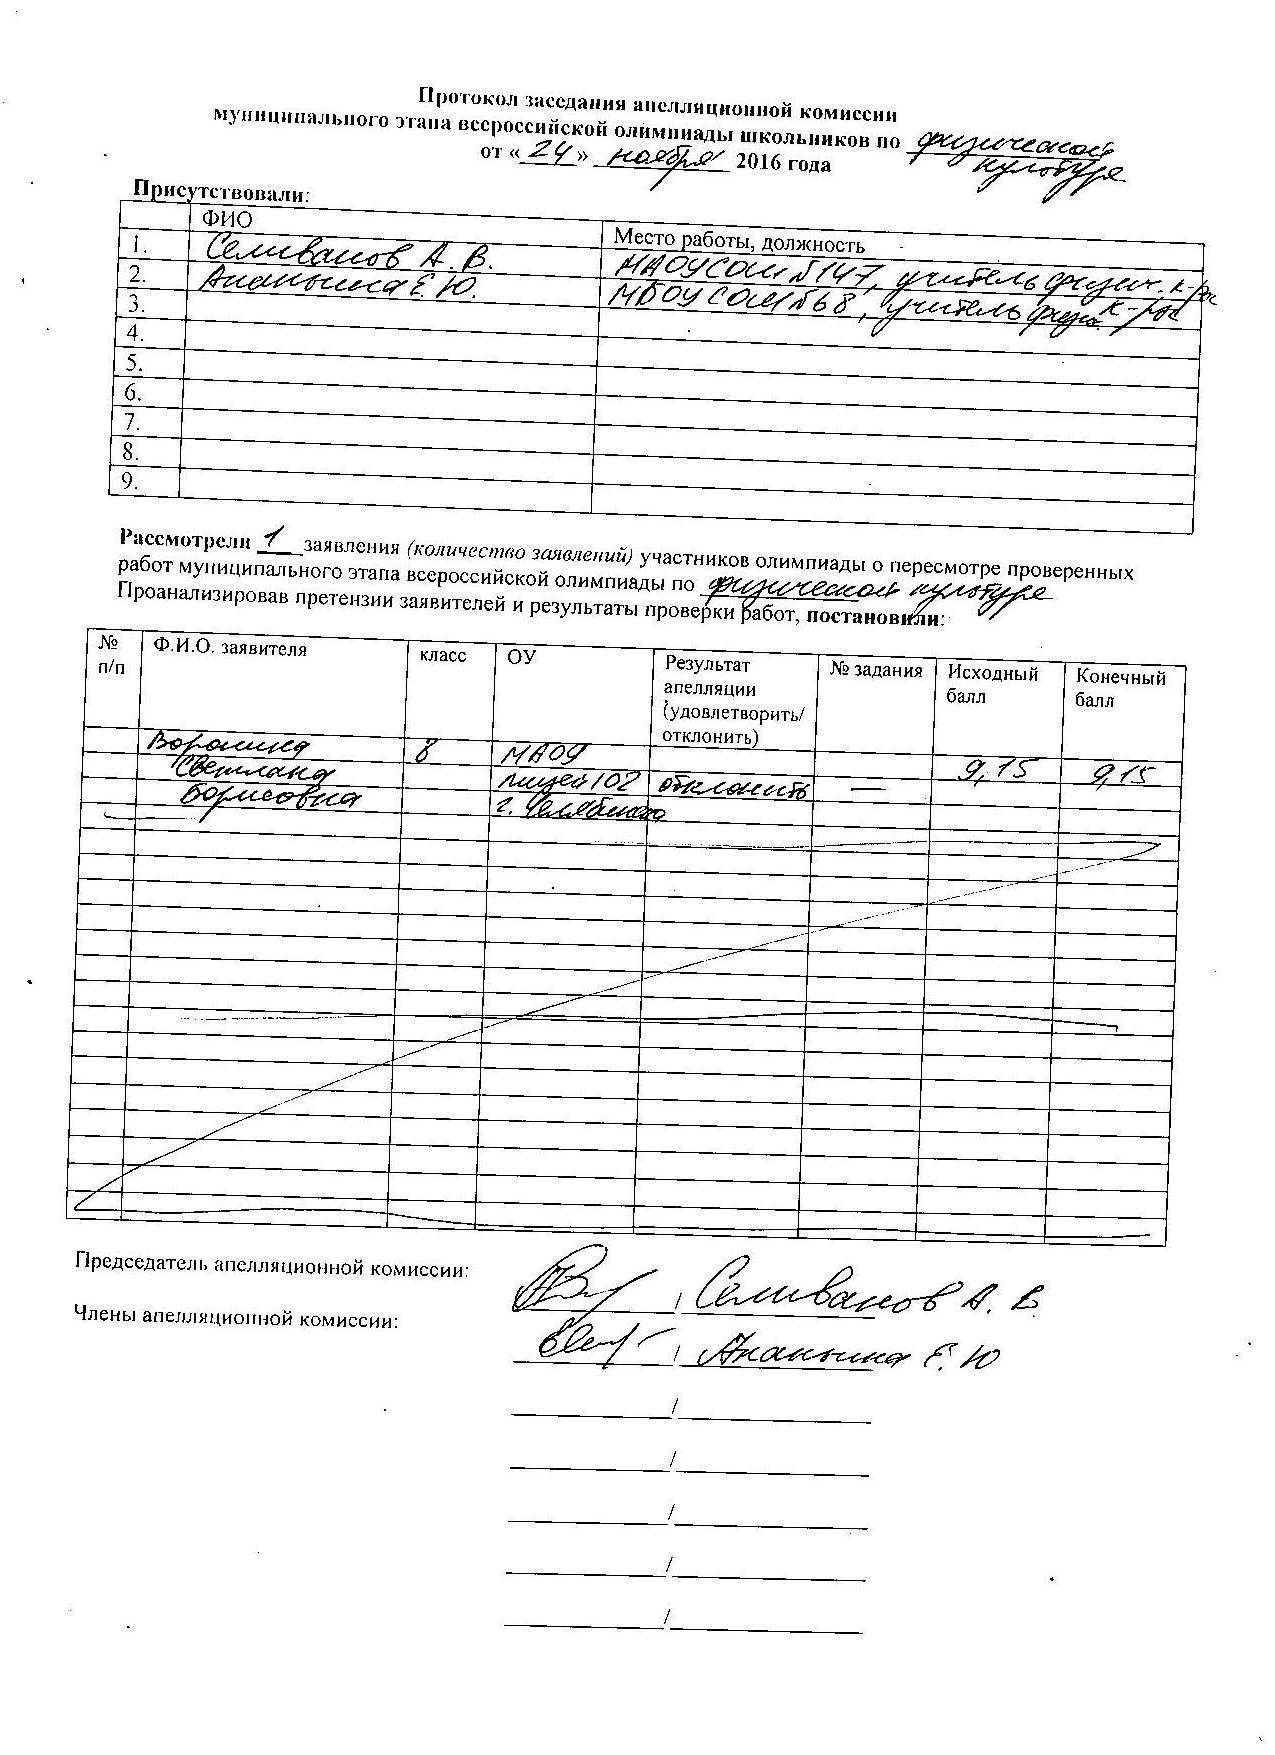 Протокол заседания апелляционной комиссии
муниципального этапа всероссийской олимпиады школьников по физической
культуре
от «24» ноября 2016 года
Присутствовали:
ФИО Место работы, должность
1. Селиванов А. В. МАОУ СОШ №147, учитель физич. к-ры
2. Ананьина Е. Ю. МБОУ СОШ №68, учитель физич. к-ры
3.
4.
5.
6.
7.
8.
9.
Рассмотрели 1 заявления (количество заявлений) участников олимпиады о пересмотре проверенных
работ муниципального этапа всероссийской олимпиады по физической культуре
Проанализировав претензии заявителей и результаты проверки работ, постановили:
№ Ф.И.О. заявителя класс ОУ Результат № задания Исходный Конечный
п/п апелляции балл балл
(удовлетворить/
отклонить)
Воронина 8 МАОУ 9,15 9,15
Светлана лицей 102 отклонить —
Борисовна г. Челябинска
Председатель апелляционной комиссии: / Селиванов А. В.
Члены апелляционной комиссии: / Ананьина Е. Ю
/
/
/
/
/